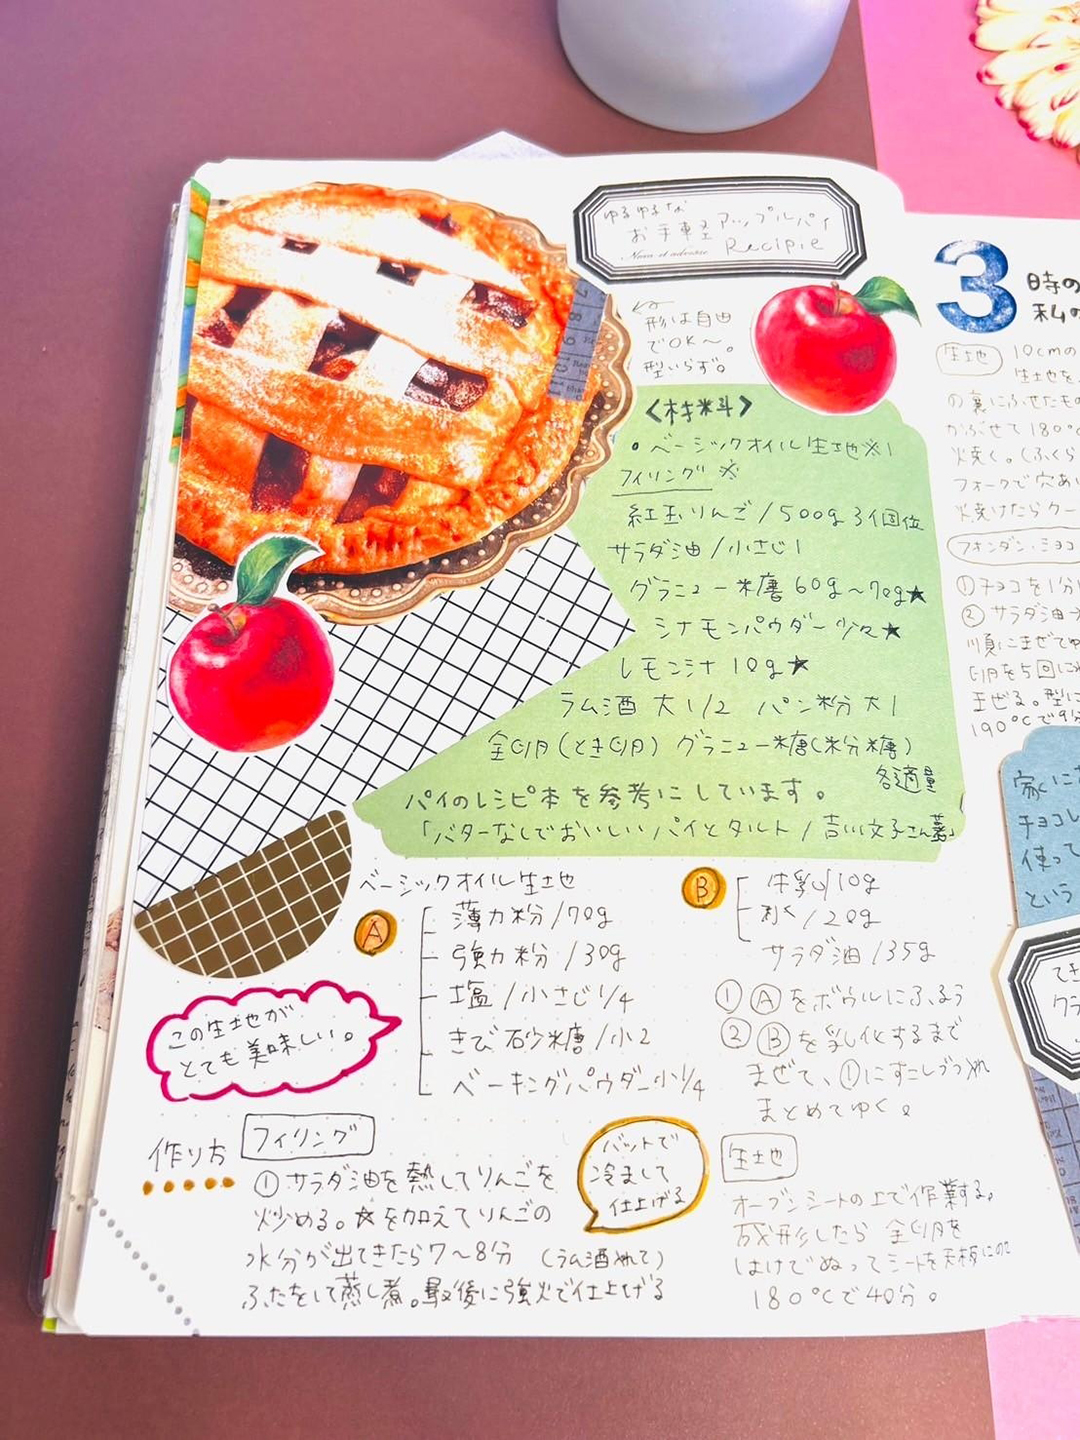 ゆるゆるな
お手軽アップルパイ
Recipie
形は自由
でOK〜。
型いらず。
<材料>
・ベーシックオイル生地※1
フィリング ※
紅玉りんご/500g 3個位
サラダ油/小さじ1
グラニュー糖 60g〜70g★
シナモンパウダー少々★
レモン汁 10g★
ラム酒 大1/2 パン粉 大1
全卵(とき卵) グラニュー糖(粉糖)
各適量
パイのレシピ本を参考にしています。
「バターなしでおいしいパイとタルト/吉川文子さん著」
ベーシックオイル生地
A
薄力粉/70g
強力粉/30g
塩/小さじ1/4
きび砂糖/小2
ベーキングパウダー小1/4
この生地が
とても美味しい。
B
牛乳/10g
水/20g
サラダ油/35g
①Aをボウルにふるう
②Bを乳化するまで
まぜて、①にすこしづつ入れ
まとめてゆく。
作り方
フィリング
①サラダ油を熱してりんごを
炒める。★を加えてりんごの
水分が出てきたら7〜8分 (ラム酒入れて)
ふたをして蒸し煮。最後に強火で仕上げる
バットで
冷まして
仕上げる
生地
オーブンシートの上で作業する。
成形したら 全卵を
はけでぬってシートを天板にのせ
180°Cで40分。
3
時の
私の
生地
10cmの
生地を
の裏にふせたもの
かぶせて180°C
焼く。(ふくら
フォークで穴あけ
焼けたらクー
フォンダンショコ
①チョコを1分
②サラダ油
順にまぜてゆ
卵を5回に
まぜる。型に
190°Cで9分
家に
チョコレ
使って
という
てき
クラ